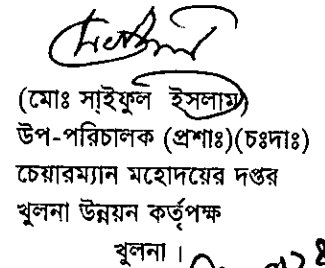 (মোঃ সাইফুল ইসলাম)
উপ-পরিচালক (প্রশাঃ)(চঃদাঃ)
চেয়ারম্যান মহোদয়ের দপ্তর
খুলনা উন্নয়ন কর্তৃপক্ষ
খুলনা।